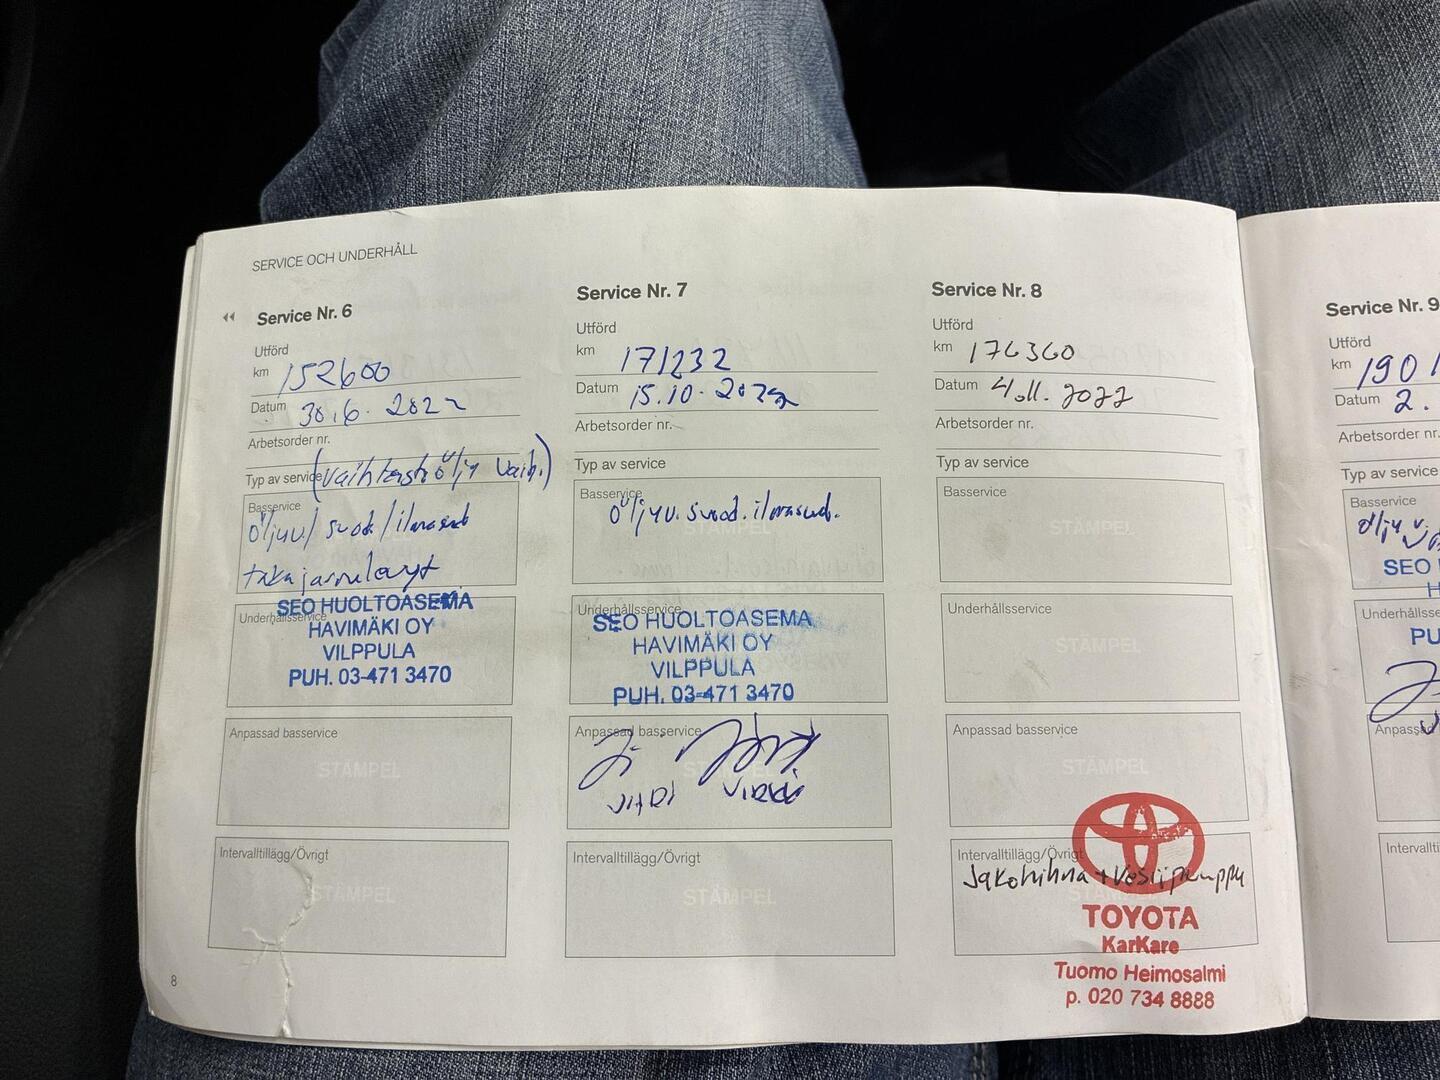 SERVICE OCH UNDERHÅLL
Service Nr. 6
Utförd
km 152600
Datum 30.6.2022
Arbetsorder nr.
Typ av service (vaihteistoöljy vaih.)
Basservice
öljyv/suod./ilmasud
takajarrulevyt
Underhållsservice
SEO HUOLTOASEMA
HAVIMÄKI OY
VILPPULA
PUH. 03-471 3470
Anpassad basservice
STÄMPEL
Intervalltillägg/Övrigt
STÄMPEL
8
Service Nr. 7
Utförd
km 171232
Datum 15.10.2022
Arbetsorder nr.
Typ av service
Basservice
öljyv. suod. ilmasud.
STÄMPEL
Underhållsservice
SEO HUOLTOASEMA
HAVIMÄKI OY
VILPPULA
PUH. 03-471 3470
Anpassad basservice
Intervalltillägg/Övrigt
STÄMPEL
Service Nr. 8
Utförd
km 176360
Datum 4.11.2022
Arbetsorder nr.
Typ av service
Basservice
STÄMPEL
Underhållsservice
STÄMPEL
Anpassad basservice
STÄMPEL
Intervalltillägg/Övrigt
Jakohihna + Vesipumppu
TOYOTA
KarKare
Tuomo Heimosalmi
p. 020 734 8888
Service Nr. 9
Utförd
km 190
Datum 2.
Arbetsorder nr.
Typ av service
Basservice
öljyv.
SEO
Underhållsservice
PU
Anpassad
Intervallti